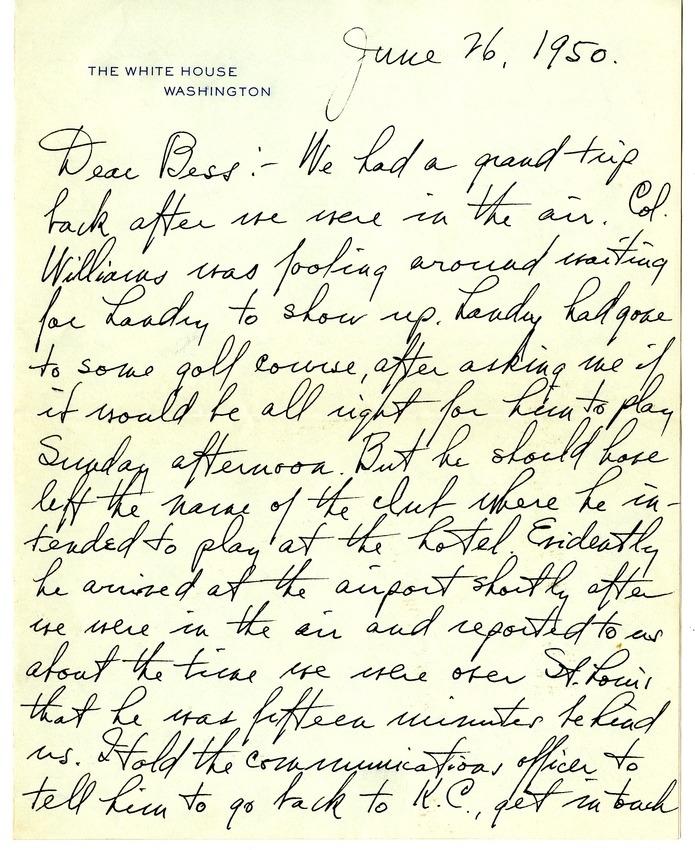 June 26, 1950.
THE WHITE HOUSE
WASHINGTON
Dear Bess:- We had a grand trip
back after we were in the air. Col.
Williams was fooling around waiting
for Landry to show up. Landry had gone
to some golf course, after asking me if
it would be all right for him to play
Sunday afternoon. But he should have
left the name of the club where he in-
tended to play at the hotel. Evidently
he arrived at the airport shortly after
we were in the air and reported to us
about the time we were over St. Louis
that he was fifteen minutes behind
us. I told the communications officer to
tell him to go back to K.C., get in touch